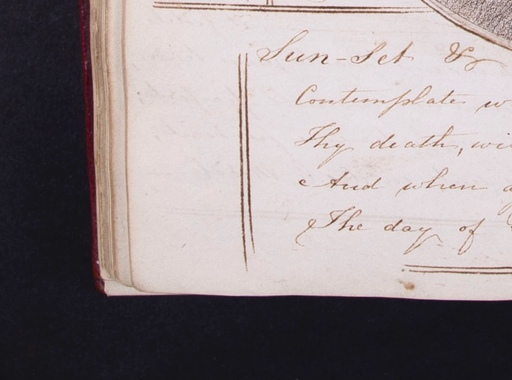 Sun-Set &c
Contemplate w
Thy death, wi
And when a
The day of